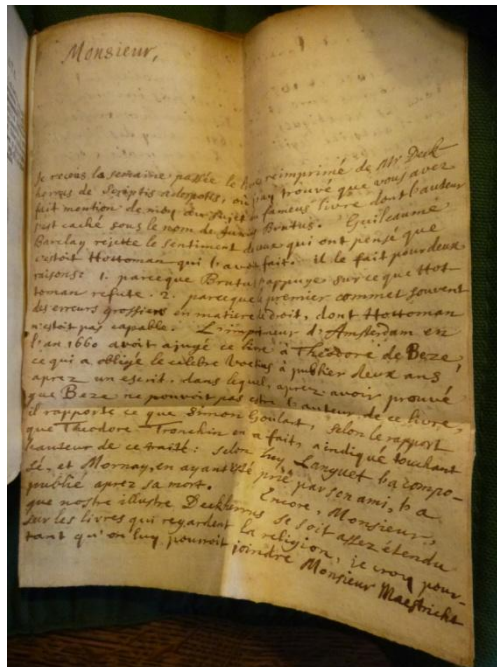 Monsieur,
Je receus la semaine passée le livre reimprimé de Mr Deck
herrus de Scriptis adespotis, où j'ay trouvé que vous avez
fait mention de moy au sujet du fameus livre dont l'auteur
s'est caché sous le nom de Junius Brutus. Guileaume
Barclay rejette le sentiment de ceux qui ont pensé que
c'estoit Hottoman qui l'avoit fait. il le fait pour deux
raisons: 1. parceque Brutus s'appuye sur ce que Hot-
toman refute. 2. parceque le premier commet souvent
des erreurs grossieres en matiere de droit, dont Hottoman
n'estoit pas capable. L'imprimeur d'Amsterdam en
l'an 1660 avoit ajugé ce livre à Theodore de Beze,
ce qui a obligé le célebre Voetius à publier deux ans
aprez un escrit, dans lequel, aprez avoir prouvé
que Beze ne pouvoit pas estre l'auteur de ce livre,
il rapporte ce que Simon Goulart, selon le rapport
que Theodore Tronchin en a fait, a indiqué touchant
l'auteur de ce traité: selon luy Languet l'a compo-
sé, et Mornay, en ayant esté prié par son ami, l'a
publié aprez sa mort. Encore, Monsieur,
que nostre illustre Deckherrus se soit assez étendu
sur les livres qui regardent la religion, je croy pour-
tant qu'on luy pourroit joindre Monsieur Maestricht